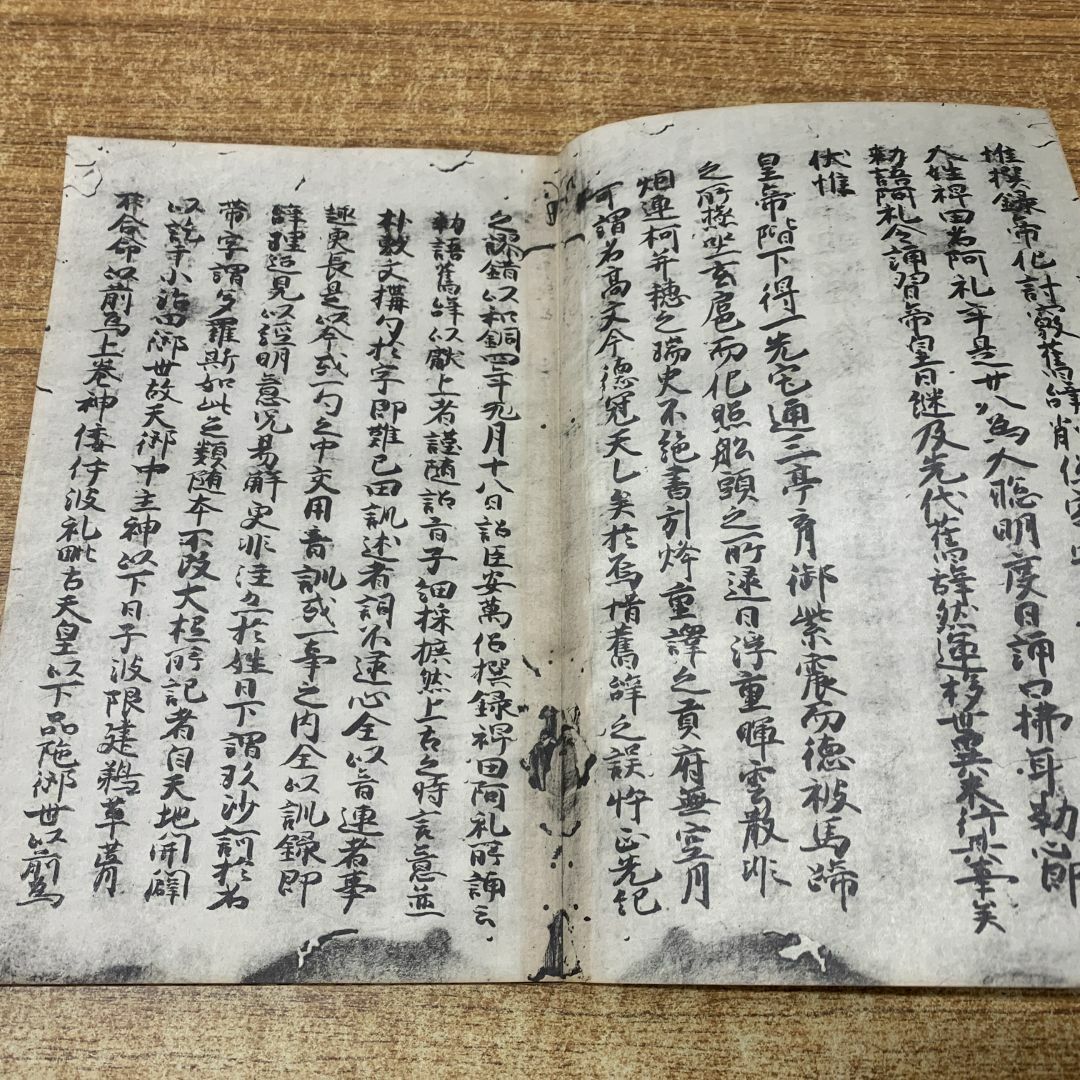 惟撰録帝化討覈舊辞削偽定
人姓稗田名阿礼年是廿八為人聡明度日誦口拂耳勒心即
勅語阿礼令誦習帝皇日継及先代舊辞然運移世異未行其事矣
伏惟
皇帝陛下得一光宅通三亭育御紫宸而徳被馬蹄
之所極坐玄扈而化照船頭之所逮日浮重暉雲散非
烟連柯并穂之瑞史不絶書列烽重譯之貢府無空月
可謂名高文命徳冠天乙矣於焉惜舊辞之誤忤正先紀
之謬錯以和銅四年九月十八日詔臣安萬侶撰録稗田阿礼所誦之
勅語舊辞以獻上者謹随詔旨子細採摭然上古之時言意並
朴敷文構句於字即難已因訓述者詞不逮心全以音連者事
趣更長是以今或一句之中交用音訓或一事之内全以訓録即
辞理叵見以注明意况易解更非注亦於姓日下謂玖沙訶於名
帯字謂多羅斯如此之類随本不改大枉所記者自天地開闢
以訖于小治田御世故天御中主神以下日子波限建鵜草葺
不合命以前為上巻神倭伊波礼毗古天皇以下品陀御世以前為